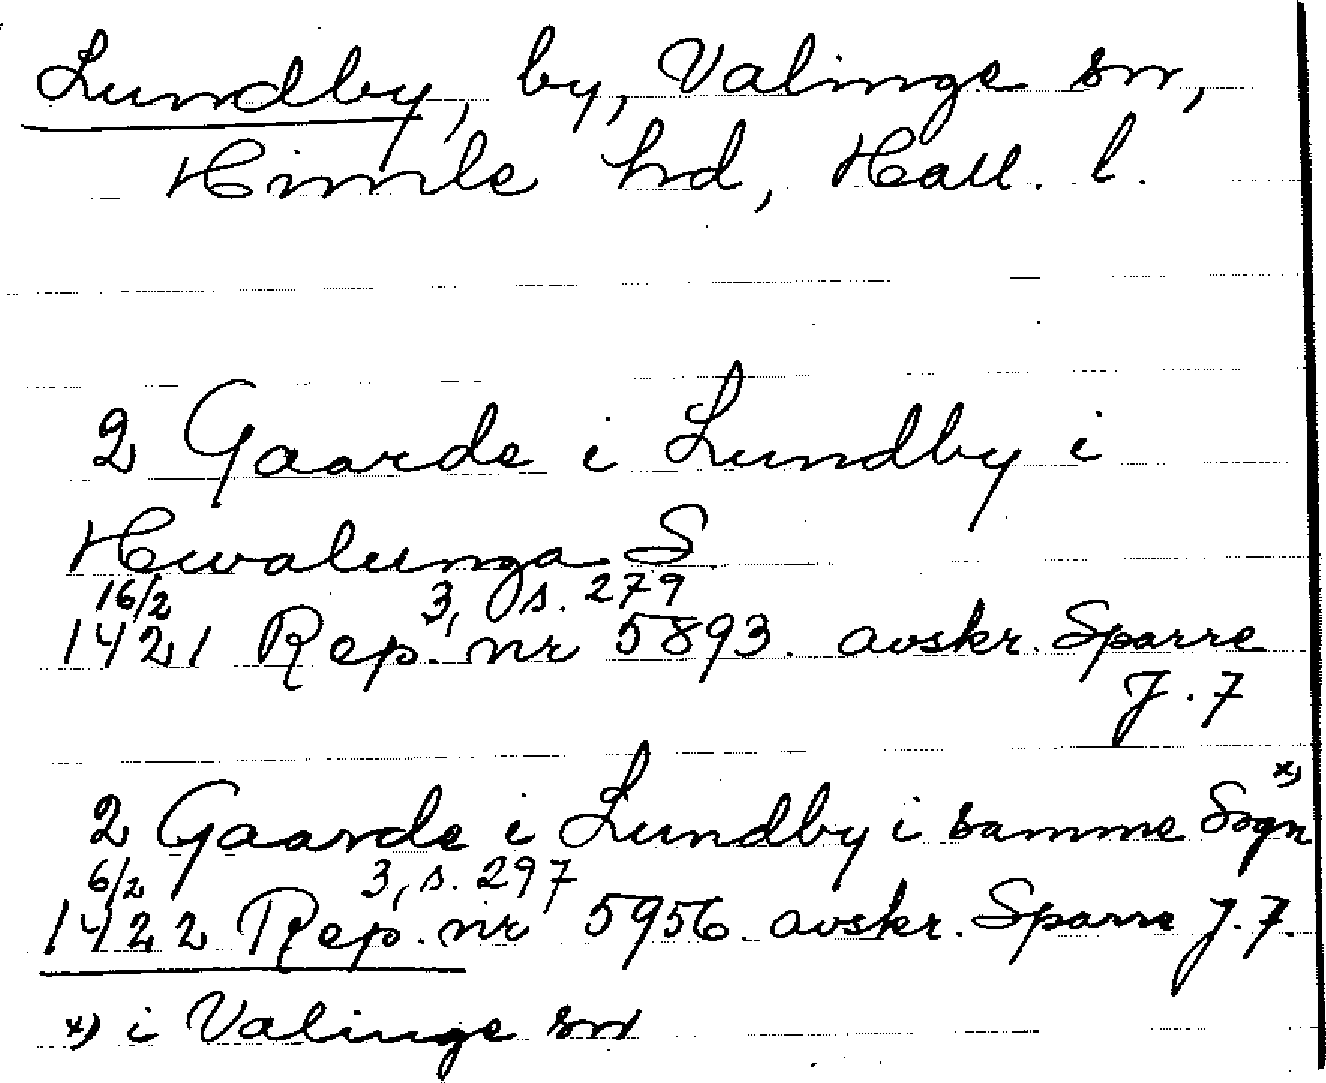 Lundby, by, Valinge sn,
Himle hd, Hall. l.
2 Gaarde i Lundby i
Hwalunga S
16/2 3, s. 279
1421 Rep. nr 5893. avskr. Sparre
J. 7
2 Gaarde i Lundby i samme Sogn x)
6/2 3, s. 297
1422 Rep. nr 5956 avskr. Sparre J. 7.
x) i Valinge sn